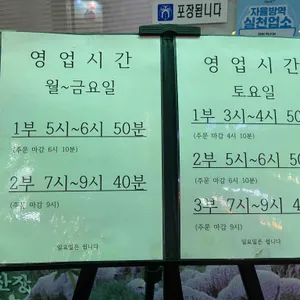 포장됩니다
자율방역
실천업소
영 업 시 간
월~금요일
1부 5시~6시 50분
(주문 마감 6시 10분)
2부 7시~9시 40분
(주문 마감 9시)
일요일은 쉽니다
영 업 시 간
토요일
1부 3시~4시 50
(주문 마감 4시 10분)
2부 5시~6시 50
(주문 마감 6시 10분)
3부 7시~9시 40
(주문 마감 9시)
일요일은 쉽니다